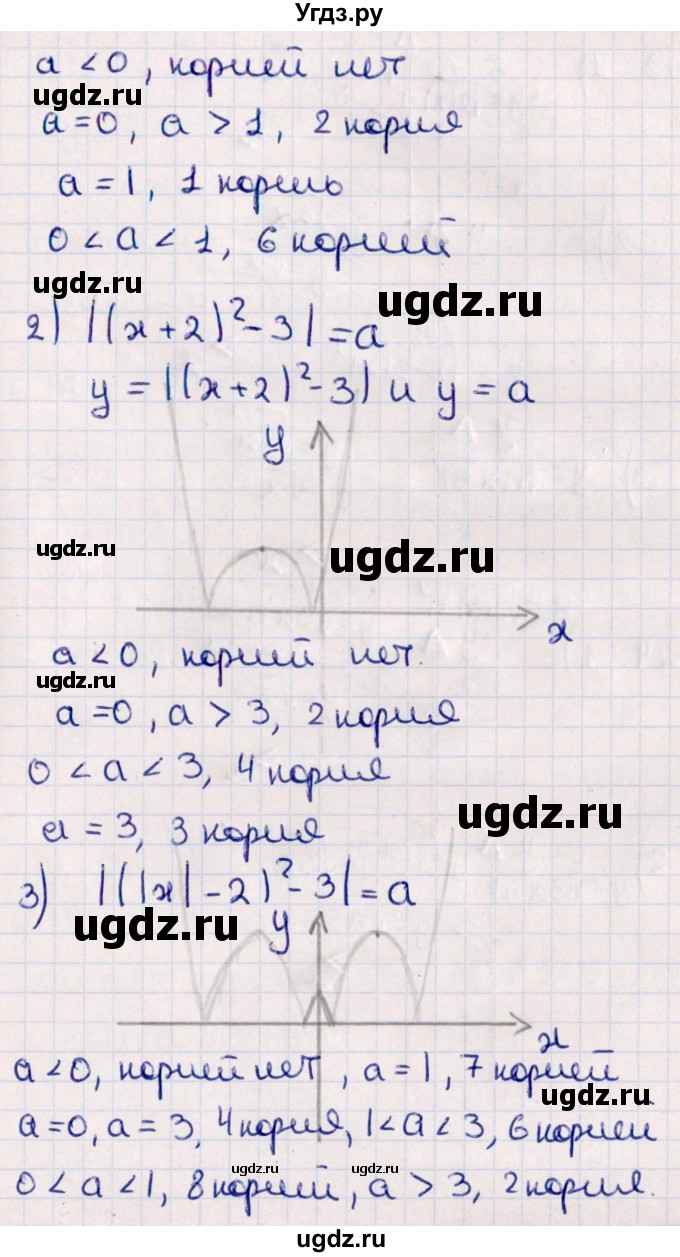 Угдз.ру
a < 0, корней нет
ugdz.ru
a = 0, a > 1, 2 корня
a = 1, 1 корень
0 < a < 1, 6 корней
ugdz.ru
2) |(x+2)²-3| = a
y = |(x+2)²-3| и y = a
y
ugdz.ru
ugdz.ru
x
a < 0, корней нет.
ugdz.ru
a = 0, a > 3, 2 корня
0 < a < 3, 4 корня
ugdz.ru
a = 3, 3 корня
3) |(|x|-2)²-3| = a
ugdz.ru
y
x
a < 0, корней нет, a = 1, 7 корней
ugdz.ru
a = 0, a = 3, 4 корня, 1 < a < 3, 6 корней
ugdz.ru
ugdz.ru
0 < a < 1, 8 корней, a > 3, 2 корня.
ugdz.ru
ugdz.ru